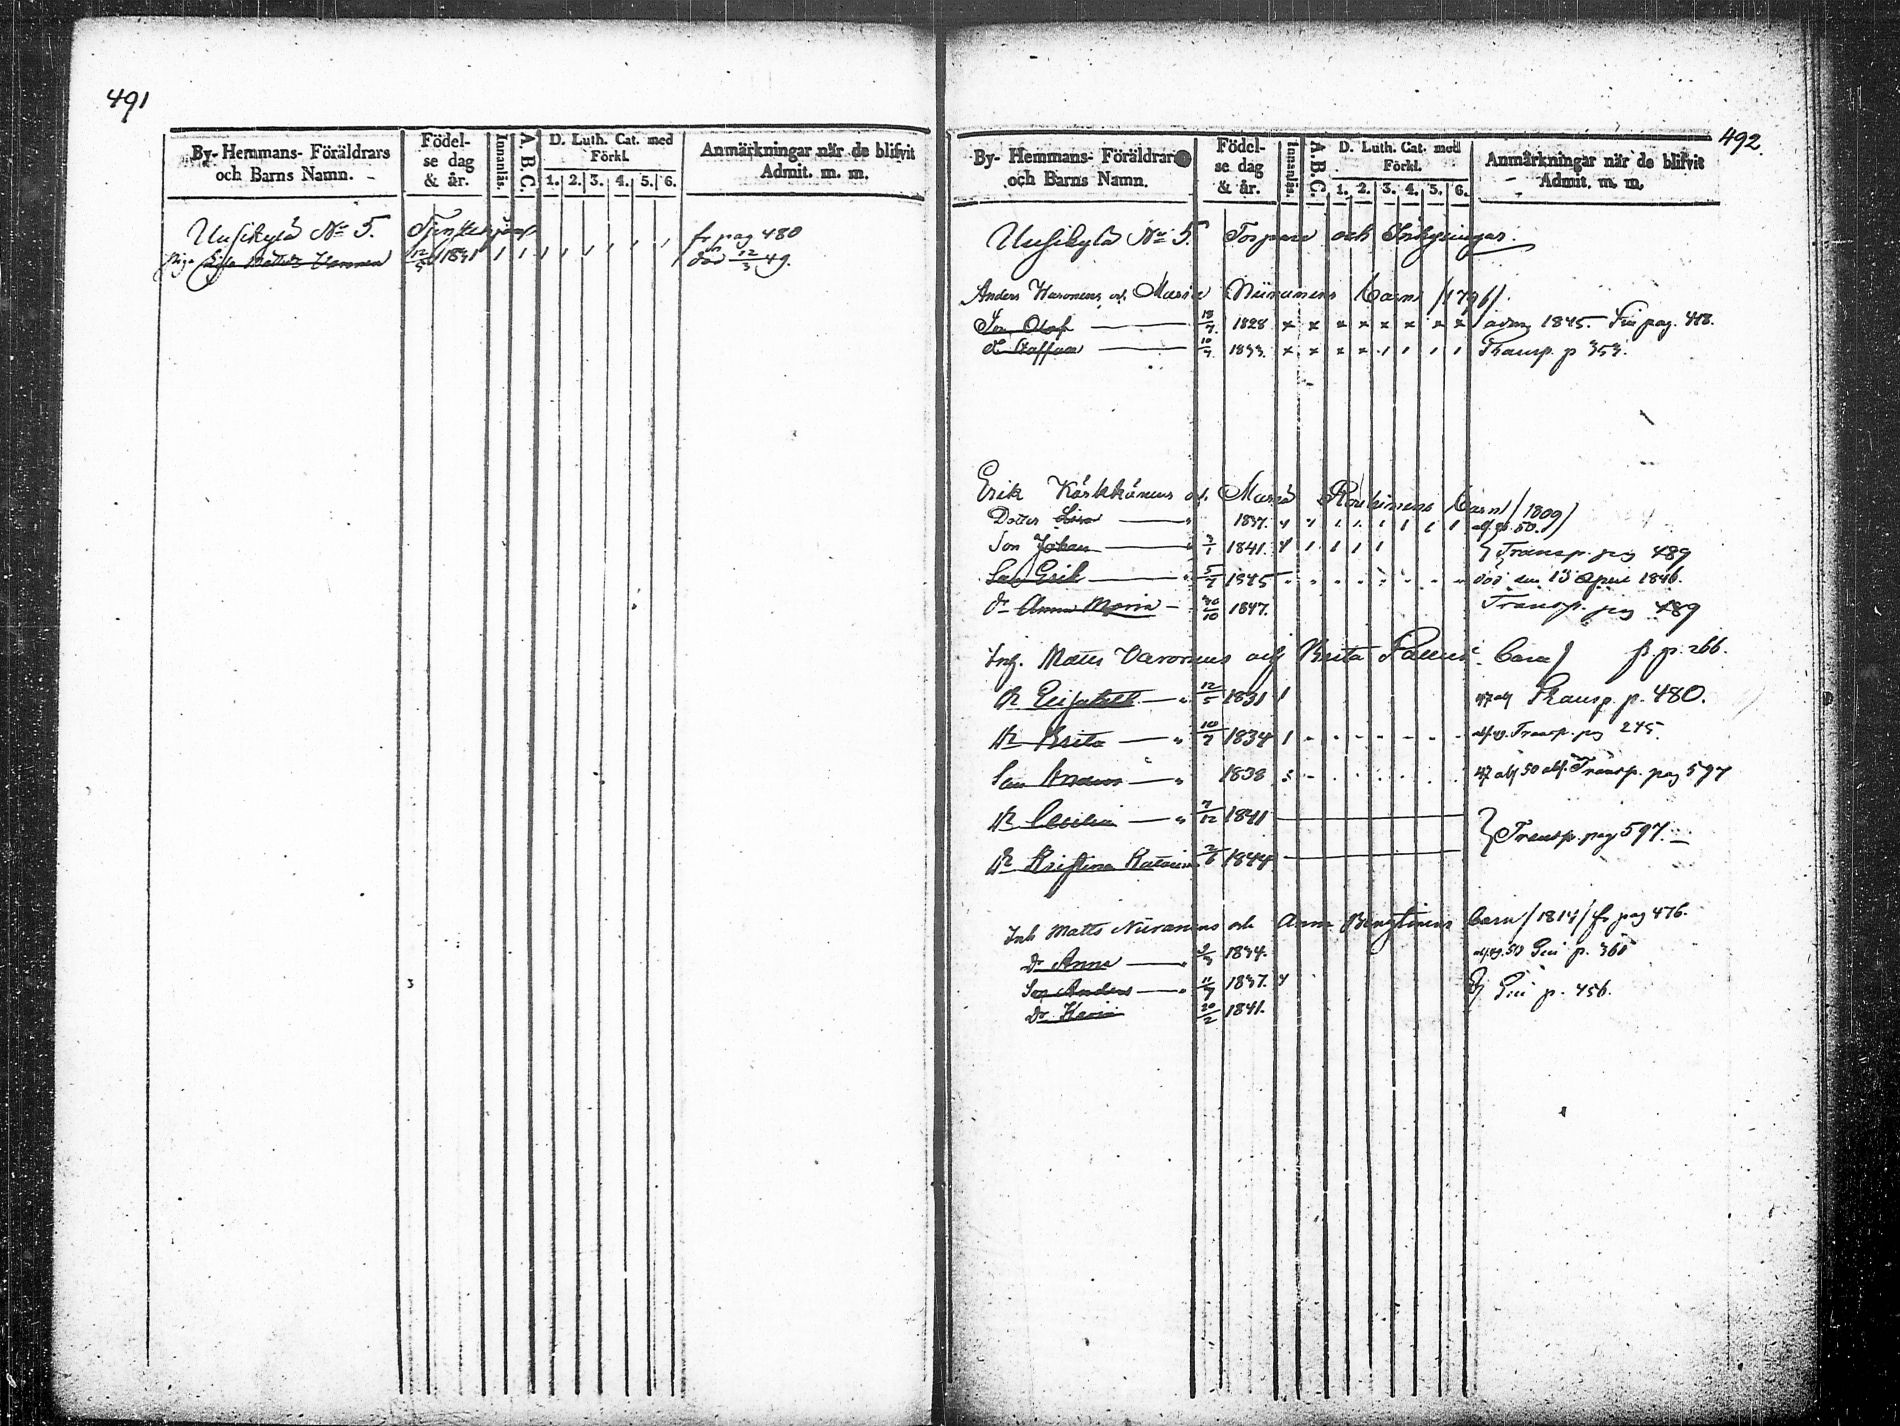 491
By- Hemmans- Föräldrars och Barns Namn.
Födelse dag & år.
Innanläs.
A. B. C.
D. Luth. Cat. med Förkl.
1. 2. 3. 4. 5. 6.
Anmärkningar når de blifvit Admit. m. m.
Uusikylä No 5.
fr pag 480
12/5 1831 död 12/3 49.
492.
By- Hemmans- Föräldrars och Barns Namn.
Födelse dag & år.
Innanläs.
A. B. C.
D. Luth. Cat. med Förkl.
1. 2. 3. 4. 5. 6.
Anmärkningar når de blifvit Admit. m. m.
Uusikylä No 5. Torpare och Inhysingar.
Anders Maria Niiranens barn /1796/.
Son Olof 18/7 1828 x x x x x x x x adm 1845. pag. 418.
Do Staffan 10/7 1833 x x x x Transp. p 353.
Erik Kärkkänens o. Maria barn /1809/
Dotter Lisa 1837.
Son Johan 3/1 1841 Transp. pag 489
Son Erik 5/7 1845 död den 13 April 1846.
Dr Anna Maria 30/10 1847. Transp. pag 489
Inh. Matts Varonens och Brita barn fr p. 266.
Dr Elisabeth 12/5 1831 Transp. p. 480.
Dr Brita 10/7 1834 Transp. pag 245.
Son Anders 1838 47 50 Transp. pag 597
Dr Cecilia 7/12 1841
Transp. pag 597.
Dr Kristina Katarina 2/6 1844
Inh Matts Niiranens och Anna barn /1814/ fr pag 476.
Dr Anna 1834. 50 p. 360
Son Anders 11/7 1837. p. 456.
Dr 20/2 1841.